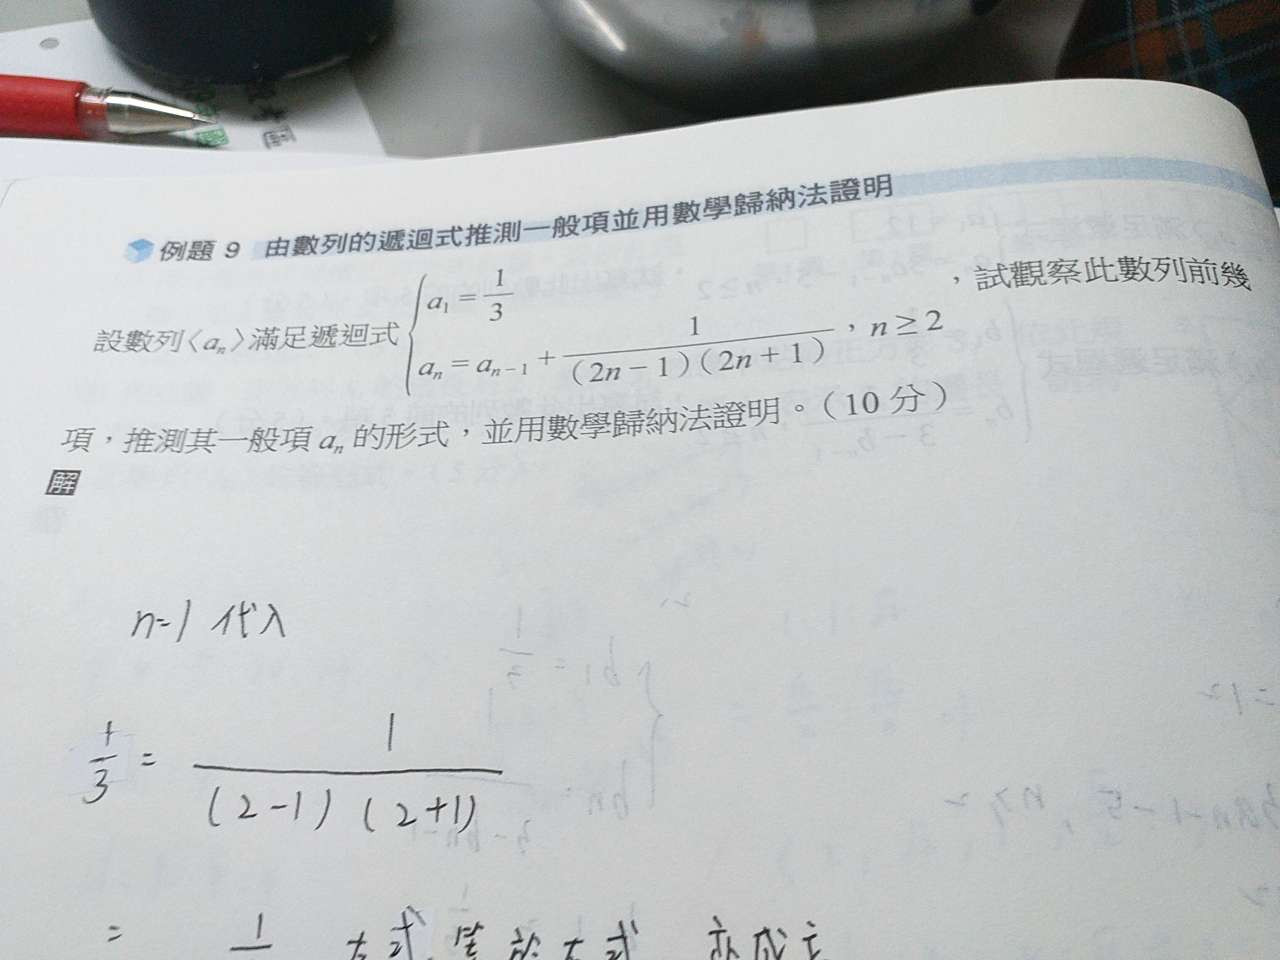 例題 9 由數列的遞迴式推測一般項並用數學歸納法證明
設數列〈aₙ〉滿足遞迴式 { a₁ = 1/3
aₙ = aₙ₋₁ + 1/((2n－1)(2n＋1))，n ≥ 2 ，試觀察此數列前幾
項，推測其一般項 aₙ 的形式，並用數學歸納法證明。（10 分）
解
n=1 代入
1/3 = 1/((2-1)(2+1))
= 1